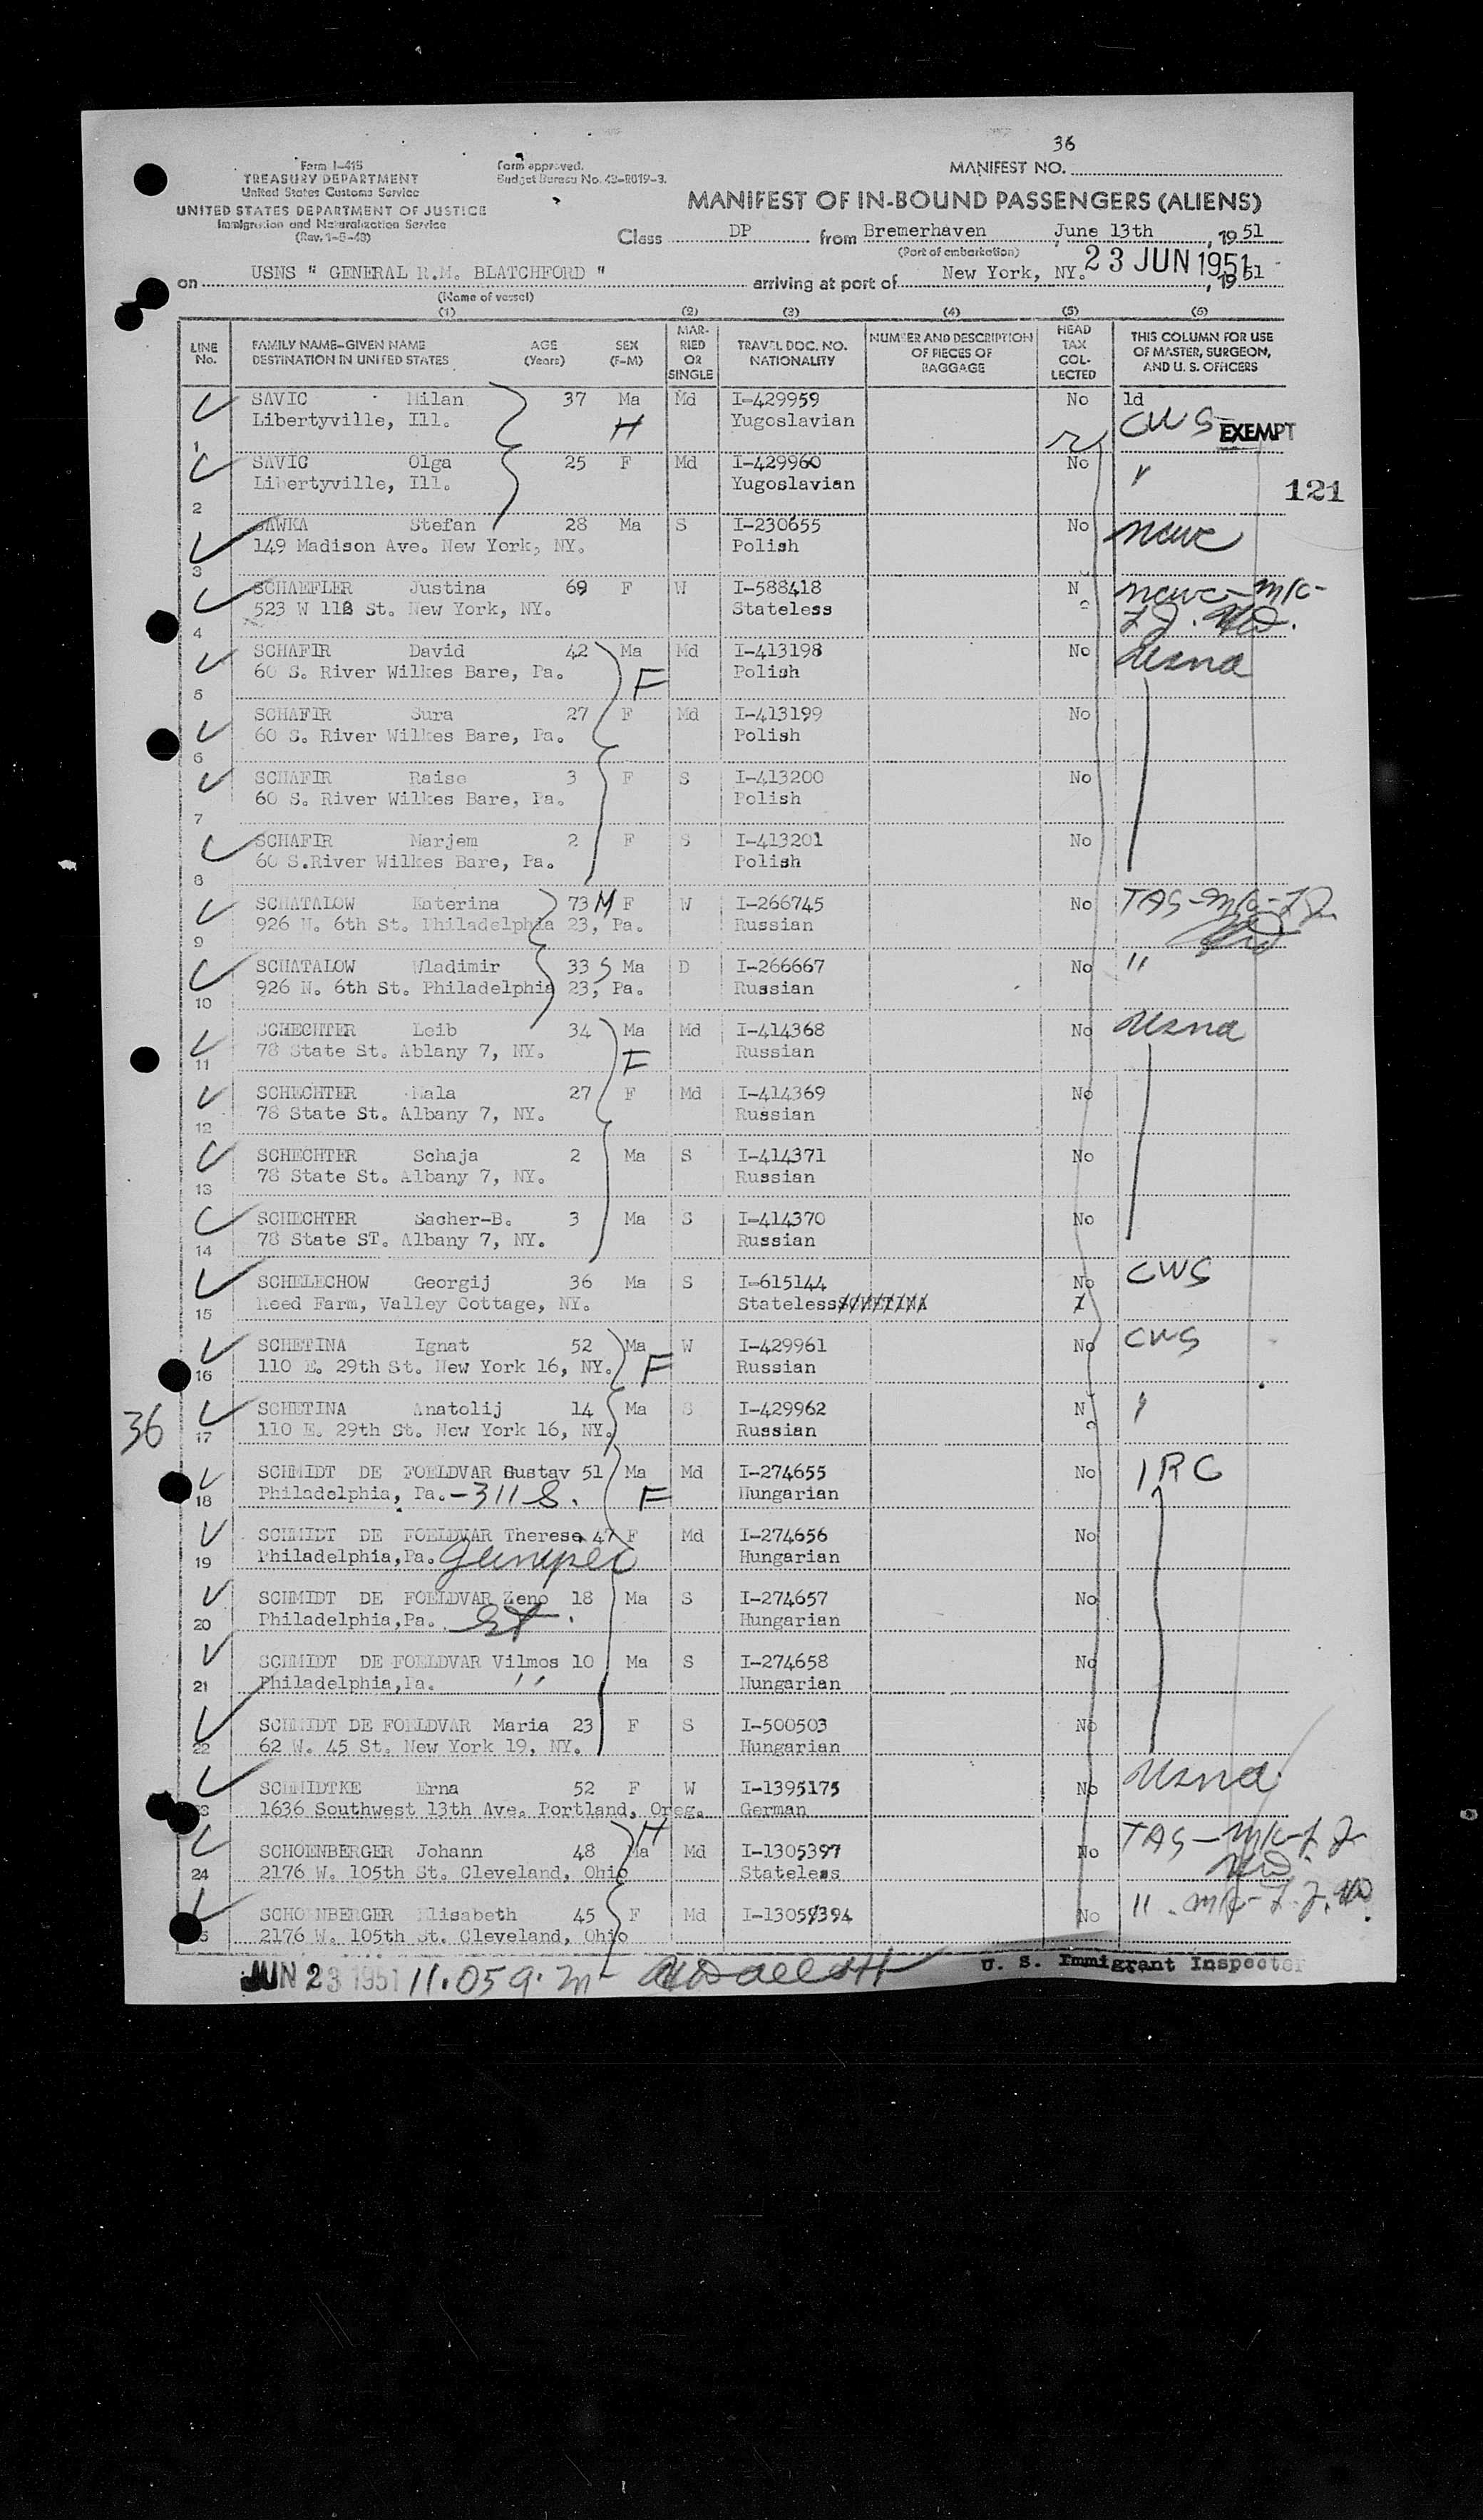 36
Form I-415
TREASURY DEPARTMENT
United States Customs Service
UNITED STATES DEPARTMENT OF JUSTICE
Immigration and Naturalization Service
(Rev. 1-5-48)
Form approved.
Budget Bureau No. 43-R019-3.
MANIFEST NO.
MANIFEST OF IN-BOUND PASSENGERS (ALIENS)
Class DP from Bremerhaven June 13th, 1951
(Port of embarkation)
on USNS " GENERAL R.M. BLATCHFORD " arriving at port of New York, NY. 23 JUN 1951, 1951
(Name of vessel)
(1) (2) (3) (4) (5) (6)
LINE No. FAMILY NAME—GIVEN NAME DESTINATION IN UNITED STATES AGE (Years) SEX (F-M) MARRIED OR SINGLE TRAVEL DOC. NO. NATIONALITY NUMBER AND DESCRIPTION OF PIECES OF BAGGAGE HEAD TAX COLLECTED THIS COLUMN FOR USE OF MASTER, SURGEON, AND U. S. OFFICERS
SAVIC Milan 37 Ma Md I-429959 No ld
1 Libertyville, Ill. H Yugoslavian CWS EXEMPT
SAVIC Olga 25 F Md I-429960 No "
2 Libertyville, Ill. Yugoslavian 121
SAWKA Stefan 28 Ma S I-230655 No ncwc
3 149 Madison Ave. New York, NY. Polish
SCHAEFLER Justina 69 F W I-588418 No ncwc-m/c-
4 523 W 112 St. New York, NY. Stateless
SCHAFIR David 42 Ma Md I-413198 No Usna
5 60 S. River Wilkes Bare, Pa. F Polish
SCHAFIR Sura 27 F Md I-413199 No
6 60 S. River Wilkes Bare, Pa. Polish
SCHAFIR Raise 3 F S I-413200 No
7 60 S. River Wilkes Bare, Pa. Polish
SCHAFIR Marjem 2 F S I-413201 No
8 60 S.River Wilkes Bare, Pa. Polish
SCHATALOW Katerina 73 M F W I-266745 No TAS-m/c-
9 926 N. 6th St. Philadelphia 23, Pa. Russian
SCHATALOW Wladimir 33 S Ma D I-266667 No "
10 926 N. 6th St. Philadelphia 23, Pa. Russian
SCHECHTER Leib 34 Ma Md I-414368 No Usna
11 78 State St. Ablany 7, NY. F Russian
SCHECHTER Mala 27 F Md I-414369 No
12 78 State St. Albany 7, NY. Russian
SCHECHTER Schaja 2 Ma S I-414371 No
13 78 State St. Albany 7, NY. Russian
SCHECHTER Sacher-B. 3 Ma S I-414370 No
14 78 State ST. Albany 7, NY. Russian
SCHELECHOW Georgij 36 Ma S I-615144 No CWS
15 Reed Farm, Valley Cottage, NY. Stateless SCHETINA
SCHETINA Ignat 52 Ma W I-429961 No CWS
16 110 E. 29th St. New York 16, NY. F Russian
SCHETINA Anatolij 14 Ma S I-429962 No "
36 17 110 E. 29th St. New York 16, NY. Russian
SCHMIDT DE FOELDVAR Gustav 51 Ma Md I-274655 No IRC
18 Philadelphia, Pa. - 311 S. F Hungarian
SCHMIDT DE FOELDVAR Therese 47 F Md I-274656 No
19 Philadelphia,Pa. Juniper Hungarian
SCHMIDT DE FOELDVAR Zeno 18 Ma S I-274657 No
20 Philadelphia,Pa. St. Hungarian
SCHMIDT DE FOELDVAR Vilmos 10 Ma S I-274658 No
21 Philadelphia,Pa. " Hungarian
SCHMIDT DE FOELDVAR Maria 23 F S I-500503 No
22 62 W. 45 St. New York 19, NY. Hungarian
SCHMIDTKE Erna 52 F W I-1395175 No Usna
23 1636 Southwest 13th Ave. Portland, Oreg. German
SCHOENBERGER Johann 48 H Ma Md I-1305397 No TAS-m/c-
24 2176 W. 105th St. Cleveland, Ohio Stateless
SCHOENBERGER Elisabeth 45 F Md I-1305394 No " m/c
25 2176 W. 105th St. Cleveland, Ohio
JUN 23 1951 11.05 a.m U. S. Immigrant Inspector